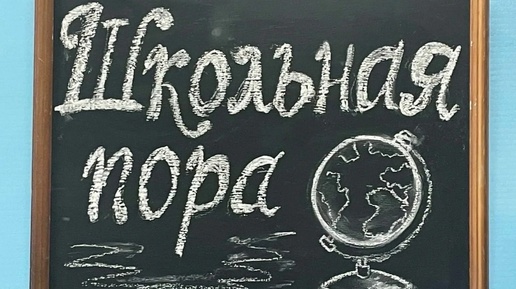 Школьная
пора